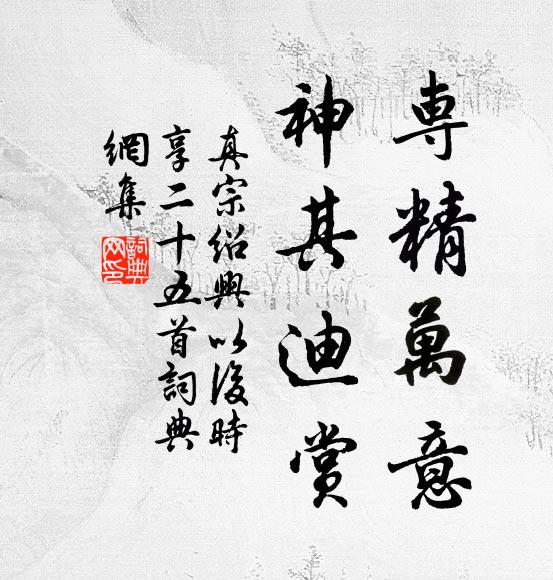 専精萬意
神其迪賞
真宗紹興以後時
享二十五首詞典
網集
詞典网印